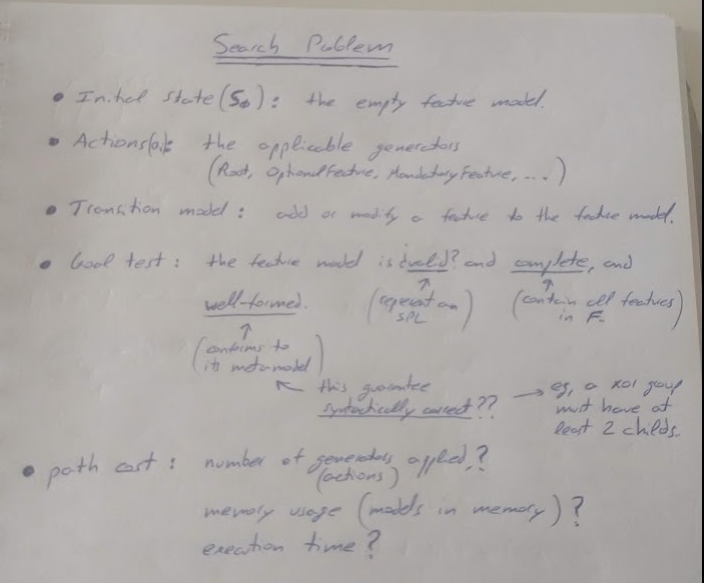 Search Problem
• Initial state (S₀): the empty feature model.
• Actions(a): the applicable generators
(Root, OptionalFeature, MandatoryFeature, ...)
• Transition model: add or modify a feature to the feature model.
• Goal test: the feature model is valid? and complete, and
well-formed. (represent an (contain all features
SPL) in F.)
(conforms to
its metamodel)
this guarantee → eg, a XOR group
syntactically correct?? must have at
least 2 childs.
• path cost: number of generators applied?
(actions)
memory usage (models in memory)?
execution time?